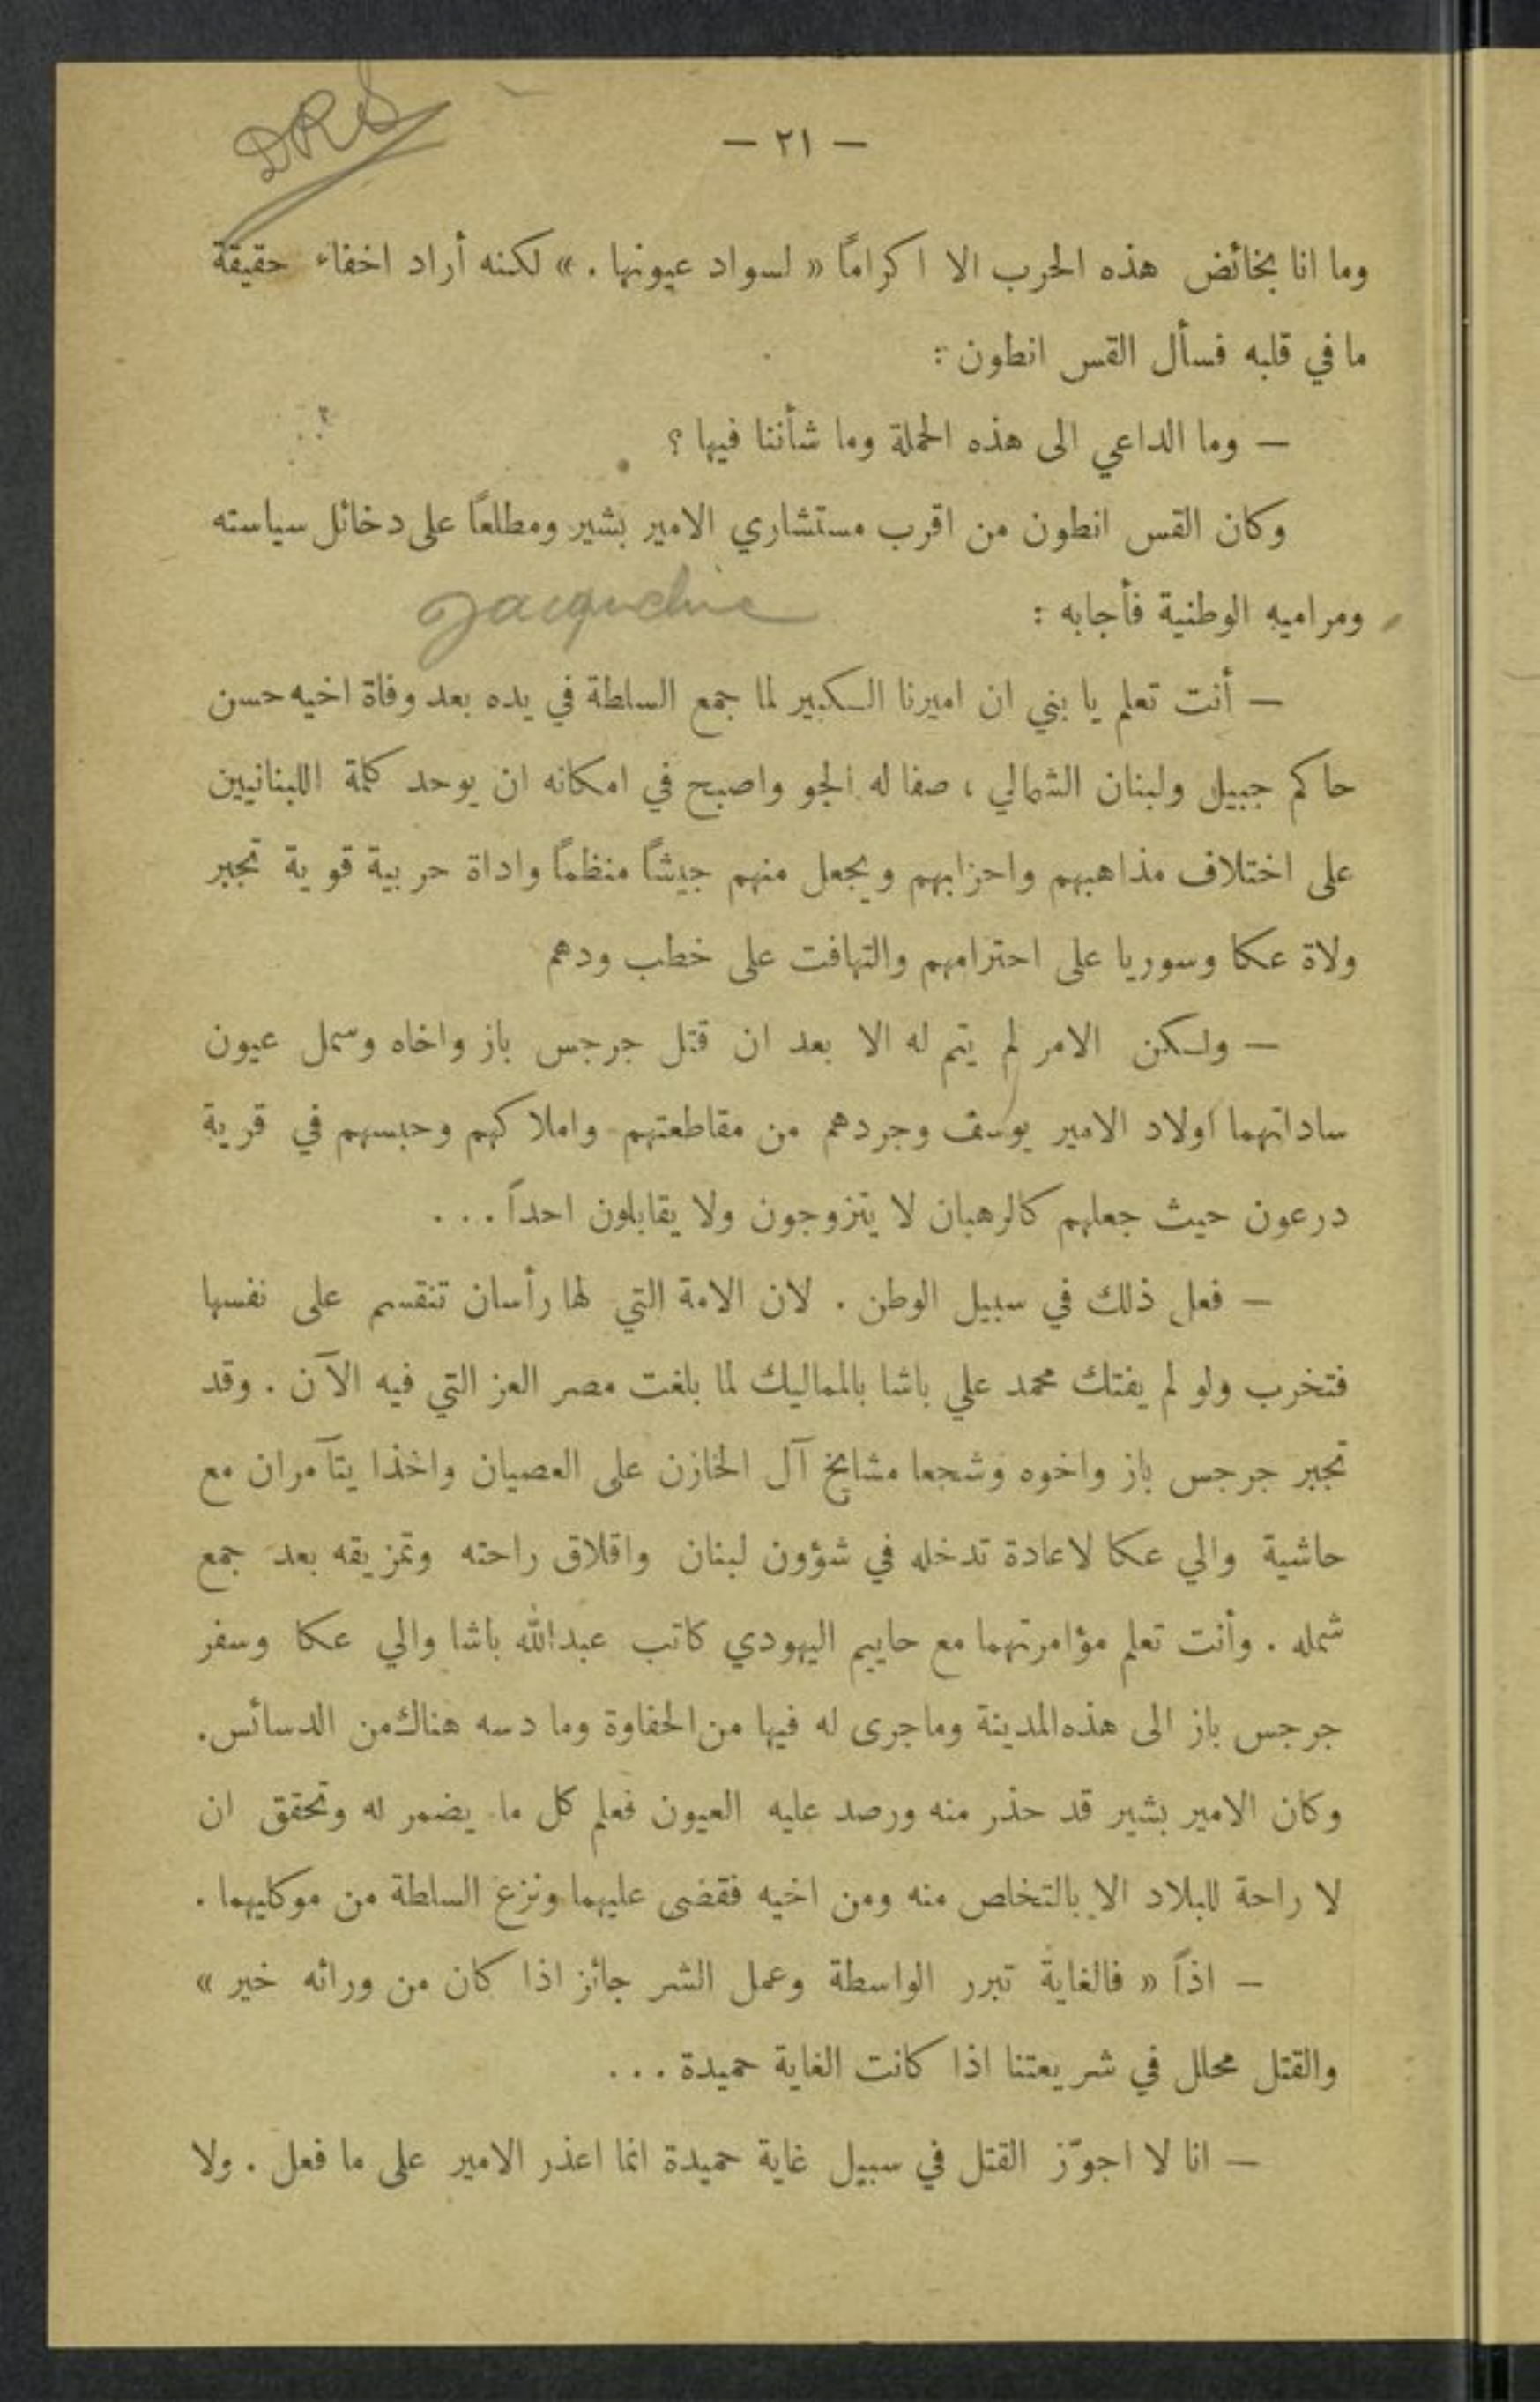 DRS
— ٢١ —
وما انا بخائض هذه الحرب الا اكراماً « لسواد عيونها . » لكنه أراد اخفاء حقيقة
ما في قلبه فسأل القس انطون :
— وما الداعي الى هذه الحملة وما شأننا فيها ؟
وكان القس انطون من اقرب مستشاري الامير بشير ومطلعاً على دخائل سياسته
ومراميه الوطنية فأجابه :
Jacqueline
— أنت تعلم يا بني ان اميرنا الكبير لما جمع السلطة في يده بعد وفاة اخيه حسن
حاكم جبيل ولبنان الشمالي ، صفا له الجو واصبح في امكانه ان يوحد كلمة اللبنانيين
على اختلاف مذاهبهم واحزابهم ويجعل منهم جيشاً منظماً واداة حربية قوية تجبر
ولاة عكا وسوريا على احترامهم والتهافت على خطب ودهم
— ولكن الامر لم يتم له الا بعد ان قتل جرجس باز واخاه وسمل عيون
ساداتهما اولاد الامير يوسف وجردهم من مقاطعتهم واملاكهم وحبسهم في قرية
درعون حيث جعلهم كالرهبان لا يتزوجون ولا يقابلون احداً ...
— فعل ذلك في سبيل الوطن . لان الامة التي لها رأسان تنقسم على نفسها
فتخرب ولو لم يفتك محمد علي باشا بالمماليك لما بلغت مصر العز التي فيه الآن . وقد
تجبر جرجس باز واخوه وشجعا مشايخ آل الخازن على العصيان واخذا يتآمران مع
حاشية والي عكا لاعادة تدخله في شؤون لبنان واقلاق راحته وتمزيقه بعد جمع
شمله . وأنت تعلم مؤامرتهما مع حاييم اليهودي كاتب عبدالله باشا والي عكا وسفر
جرجس باز الى هذه المدينة وما جرى له فيها من الحفاوة وما دسه هناك من الدسائس .
وكان الامير بشير قد حذر منه ورصد عليه العيون فعلم كل ما يضمر له وتحقق ان
لا راحة للبلاد الا بالتخلص منه ومن اخيه فقضى عليهما ونزع السلطة من موكليهما .
— اذاً « فالغاية تبرر الواسطة وعمل الشر جائز اذا كان من ورائه خير »
والقتل محلل في شريعتنا اذا كانت الغاية حميدة ...
— انا لا اجوّز القتل في سبيل غاية حميدة انما اعذر الامير على ما فعل . ولا